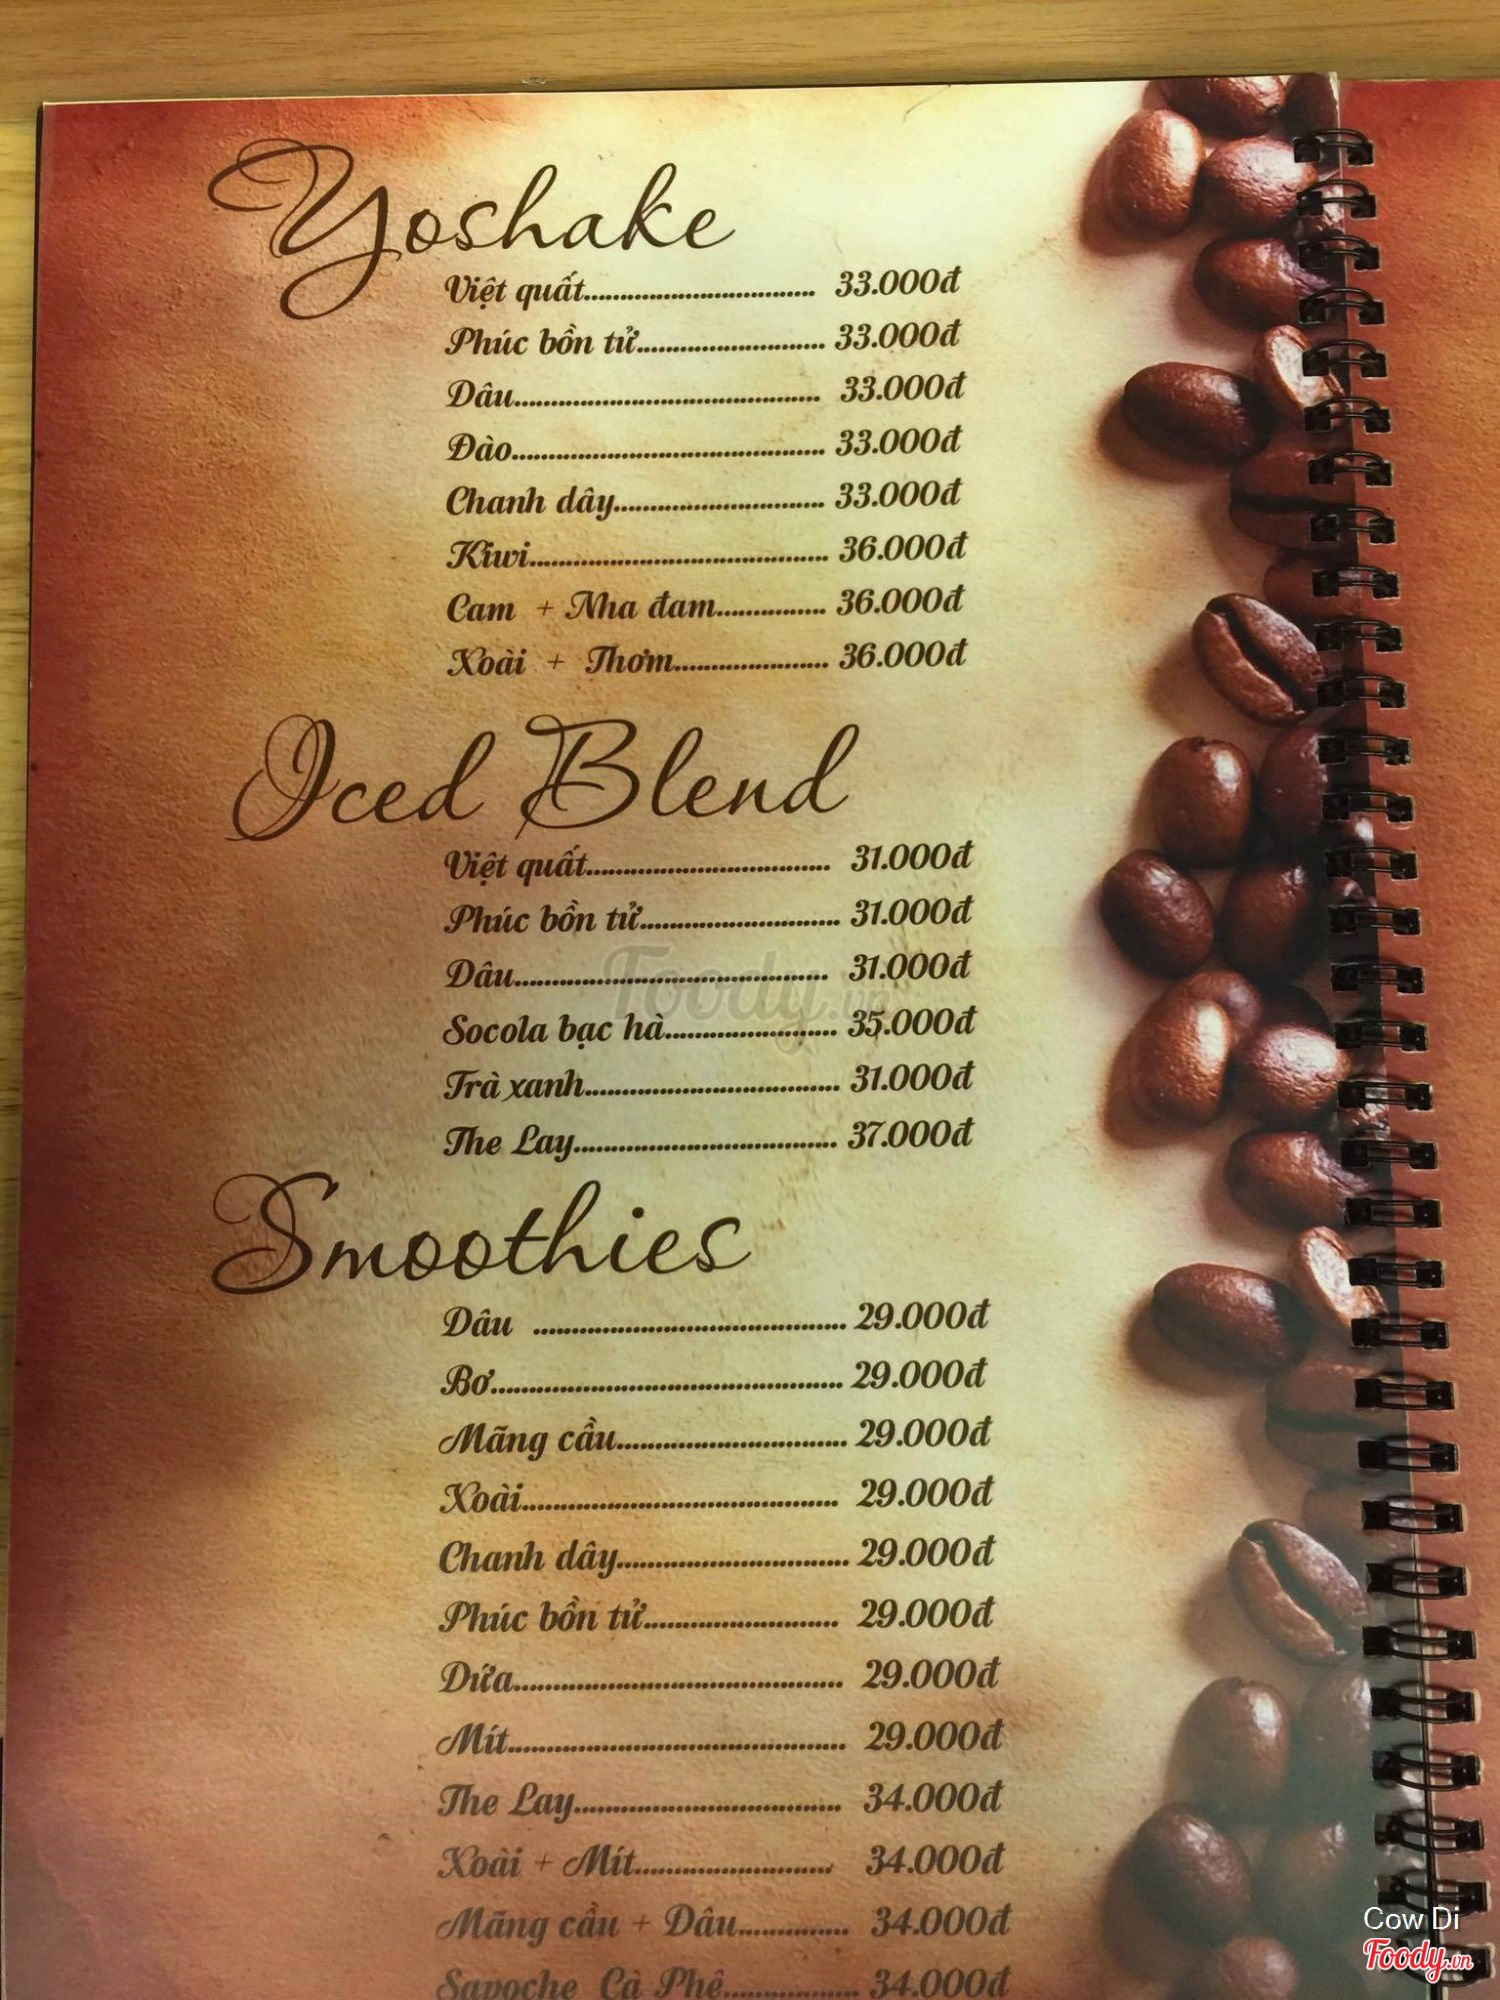 Yoshake
Việt quất................................ 33.000đ
Phúc bồn tử.......................... 33.000đ
Dâu.......................................... 33.000đ
Đào........................................... 33.000đ
Chanh dây............................. 33.000đ
Kiwi......................................... 36.000đ
Cam + Nha đam............... 36.000đ
Xoài + Thơm..................... 36.000đ
Iced Blend
Việt quất................................. 31.000đ
Phúc bồn tử........................... 31.000đ
Dâu........................................... 31.000đ
Socola bạc hà....................... 35.000đ
Trà xanh................................... 31.000đ
The Lay.................................... 37.000đ
Foody.vn
Smoothies
Dâu .......................................... 29.000đ
Bơ............................................... 29.000đ
Mãng cầu............................... 29.000đ
Xoài.......................................... 29.000đ
Chanh dây............................... 29.000đ
Phúc bồn tử.......................... 29.000đ
Dứa............................................ 29.000đ
Mít............................................. 29.000đ
The Lay.................................... 34.000đ
Xoài + Mít.......................... 34.000đ
Mãng cầu + Dâu.............. 34.000đ
Sapoche Cà Phê.................. 34.000đ
Cow Di
Foody.vn